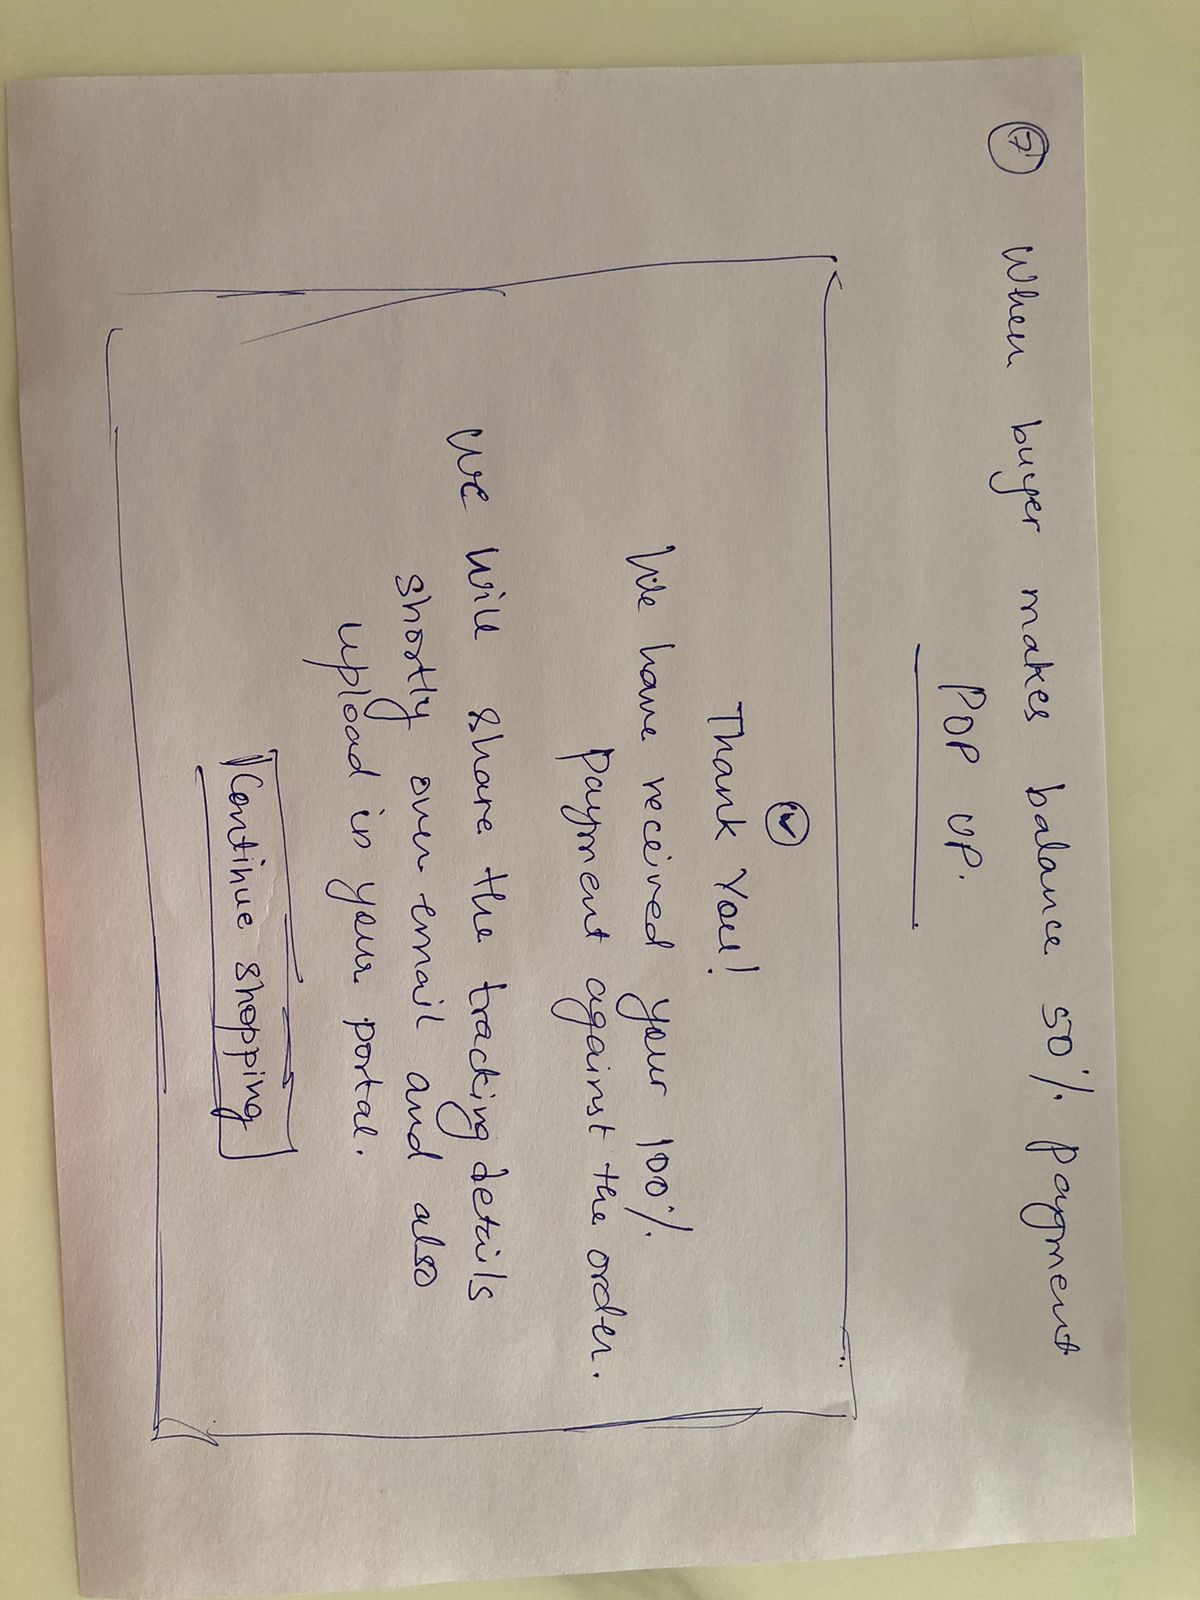 7 When buyer makes balance 50% payment
POP UP.
Thank You!
We have received your 100%
payment against the order.
We will share the tracking details
shortly over email and also
upload in your portal.
Continue shopping